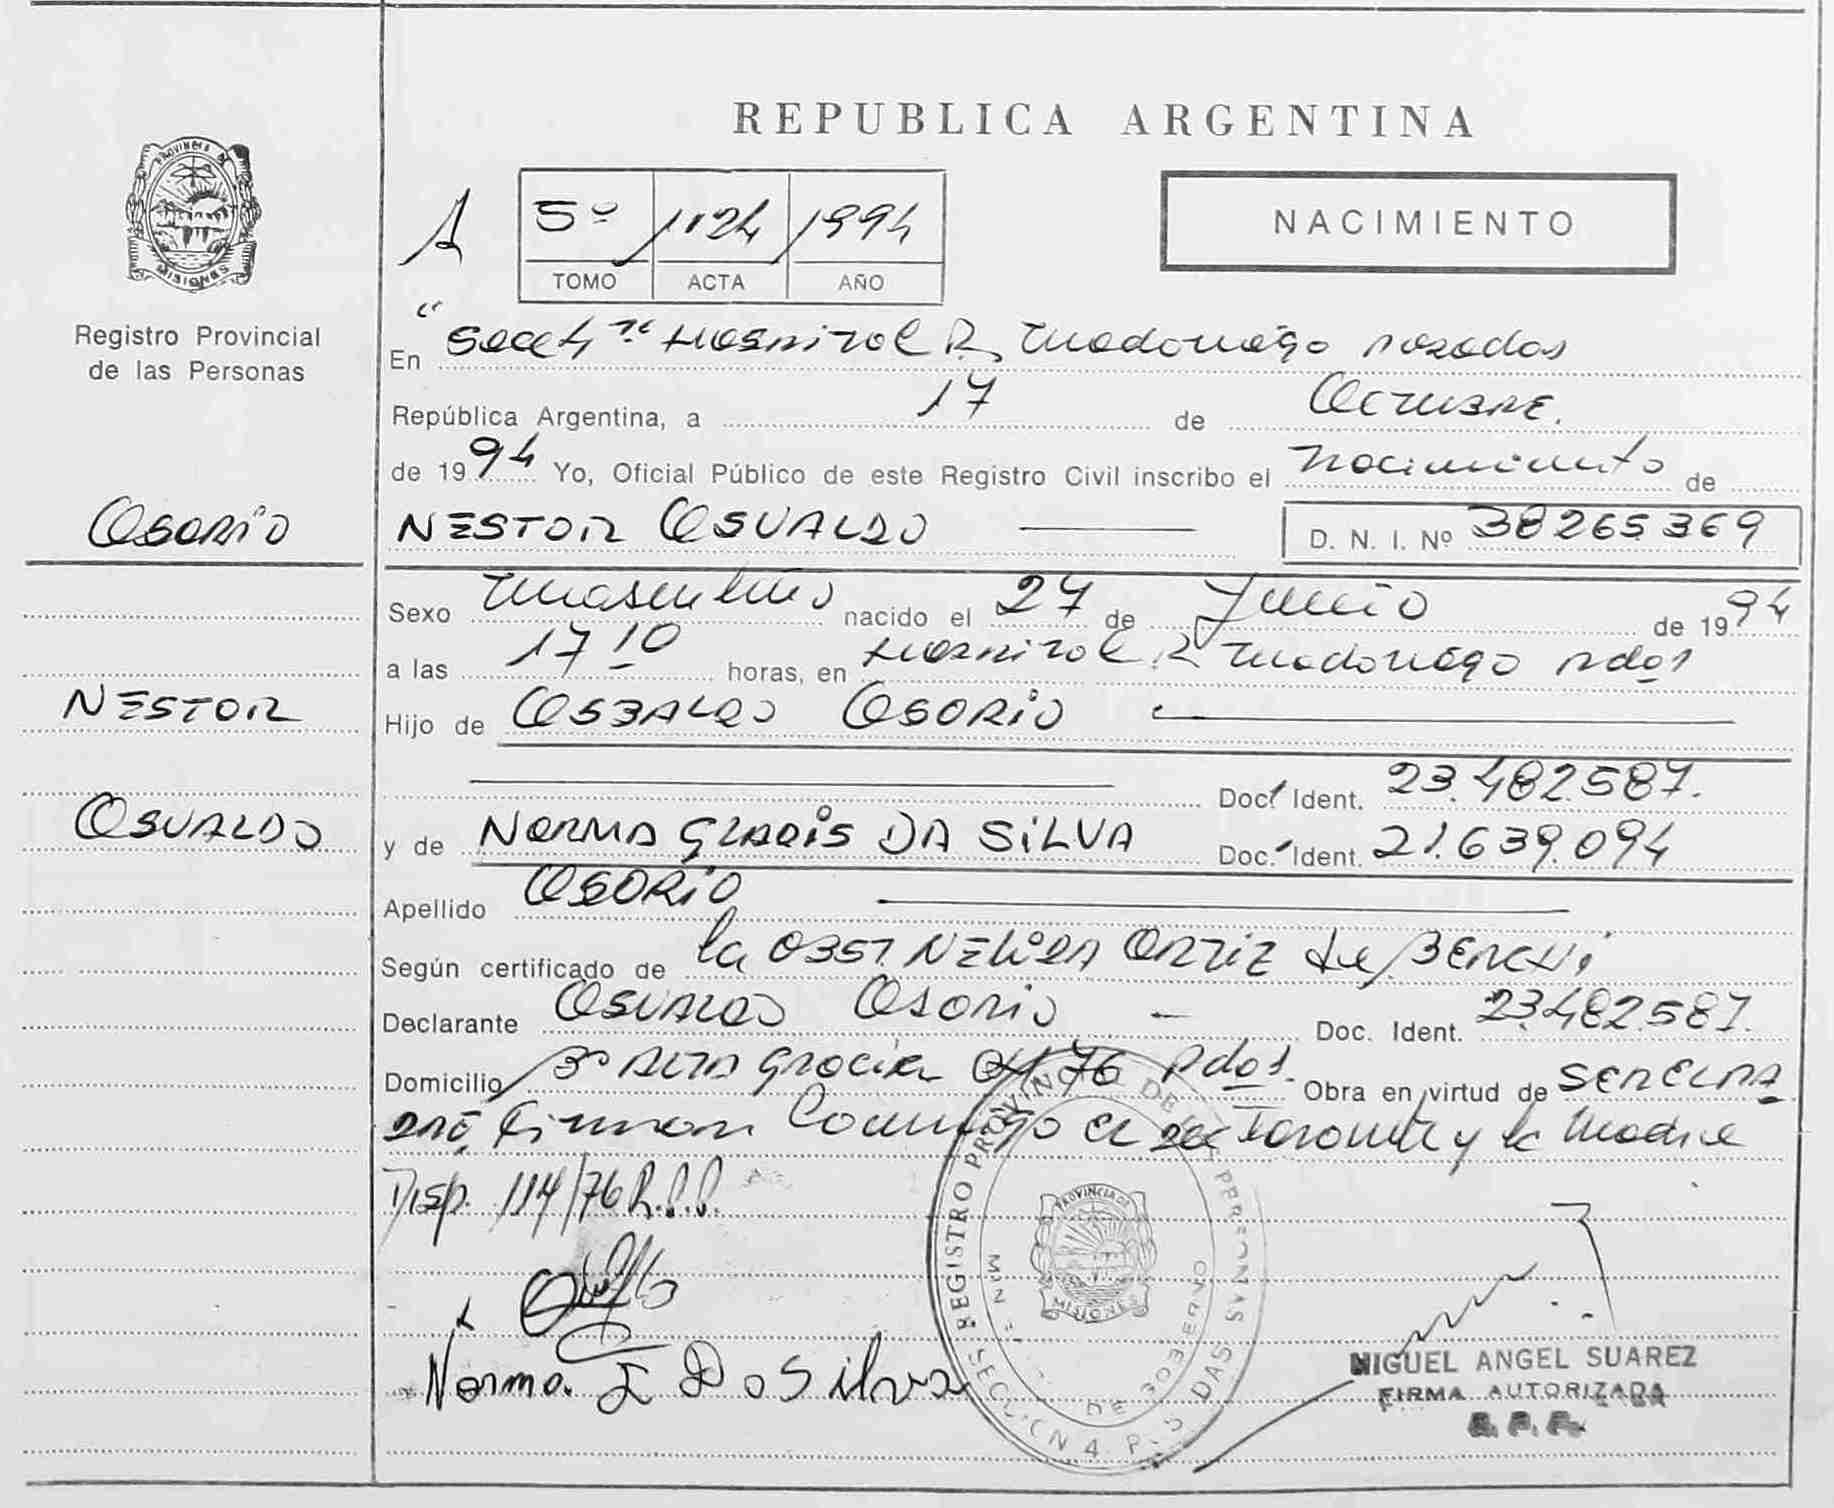 REPUBLICA ARGENTINA
PROVINCIA DE
MISIONES
Registro Provincial
de las Personas
A
5º 1124 1994
TOMO ACTA AÑO
NACIMIENTO
En Secc 4ª Hospital R. Madariaga Posadas
República Argentina, a 17 de Octubre.
de 1994 Yo, Oficial Público de este Registro Civil inscribo el nacimiento de
OSORIO
NESTOR OSVALDO D. N. I. Nº 38265369
Sexo Masculino nacido el 27 de Junio de 1994
a las 17 10 horas, en Hospital R Madariaga Pdas
NESTOR
Hijo de OSBALDO OSORIO
Doc. Ident. 23.482.587.
OSVALDO
y de NORMA GLADIS DA SILVA Doc. Ident. 21.639.094
Apellido OSORIO
Según certificado de la OBST NELIDA ORTIZ de
Declarante OSVALDO OSORIO Doc. Ident. 23.482.587.
Domicilio Bº ALTA Gracia 76 Pdas. Obra en virtud de SER EL PA
DRE, Firman Conmigo el y la Madre
Disp. 114/76 R.P.P.
Norma Da Silva
REGISTRO PROVINCIAL DE LAS PERSONAS
PROVINCIA DE
MISIONES
DE GOBIERNO
SECCION 4 P. SDAS
MIGUEL ANGEL SUAREZ
FIRMA AUTORIZADA
R. P. P.